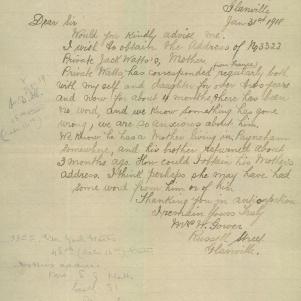 Glanville
Jan 31st 1918
Dear Sir
Would you kindly advise me.
I wish to obtain the Address of No 3323
Private Jack Watts's, Mother
(from France)
Private Watts, has corresponded regularly both
with my self and daughter for over two years
and now for about 4 months there has been
no word, and we know something has gone
wrong, we are so anxious about him,
We know he has a Mother living in Kynsham
somewhere, and his brother returned about
3 months ago. How could I obtain his Mothers
address. I think perhaps she may have had
some word from him or of him.
Thanking you in anticipation
I remain yours truly
Mrs H. Gower
Russell Street
Glanville.